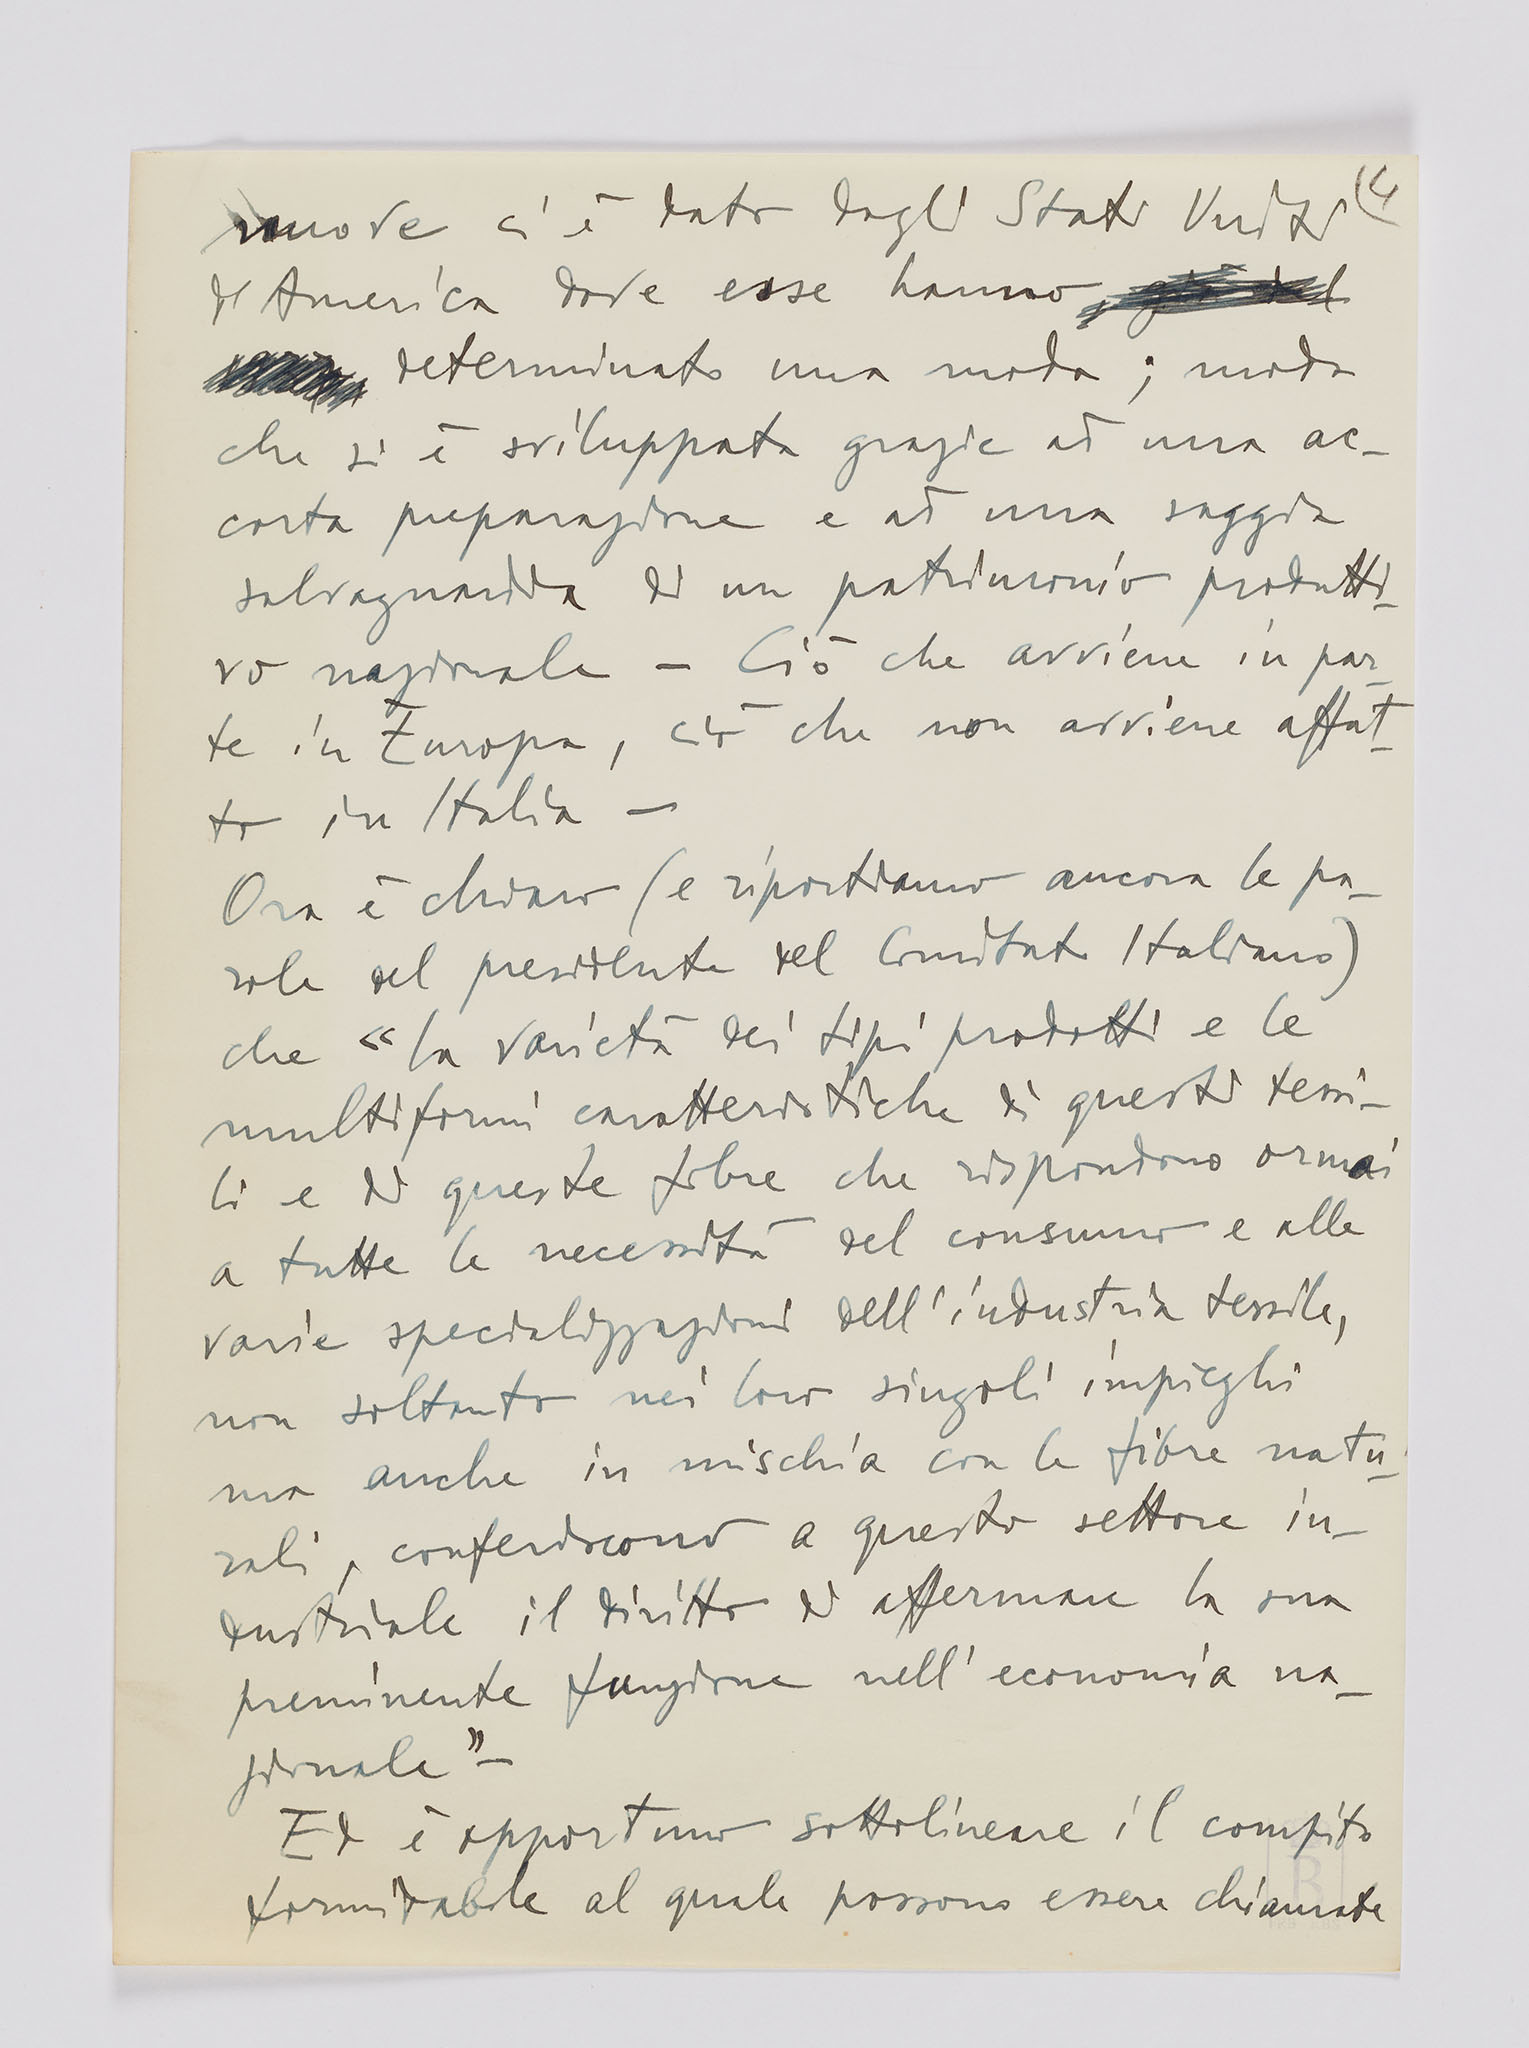 nuove ci è dato dagli Stati Uniti (4
d'America dove esse hanno
determinato una moda; moda
che si è sviluppata grazie ad una ac-
corta preparazione e ad una saggia
salvaguardia di un patrimonio produtti-
vo nazionale – Ciò che avviene in par-
te in Europa, ciò che non avviene affat-
to in Italia –
Ora è chiaro (e riportiamo ancora le pa-
role del presidente del Comitato Italiano)
che "la varietà dei tipi prodotti e le
multiformi caratteristiche di questi tessi-
li e di queste fibre che rispondono ormai
a tutte le necessità del consumo e alle
varie specializzazioni dell'industria tessile,
non soltanto nei loro singoli impieghi
ma anche in mischia con le fibre natu-
rali, conferiscono a questo settore in-
dustriale il diritto di affermare la sua
preminente funzione nell'economia na-
zionale" –
Ed è opportuno sottolineare il compito
formidabile al quale possono essere chiamate